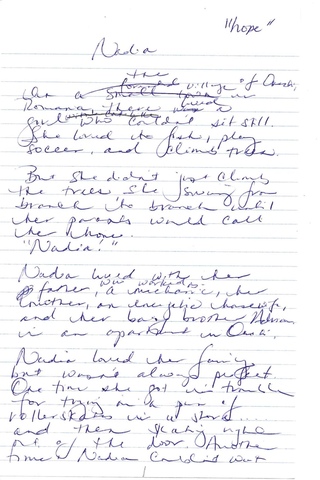 "hope"
Nadia
the
In a small town in
forested village of Onesti,
Romania, there lived a
girl who couldn't sit still.
She loved to fish, play
soccer, and climb trees.
But she didn't just climb
the trees she swung from
branch to branch until
her parents would call
her home.
"Nadia!"
Nadia lived with her
father, who worked as a mechanic, her
mother, an energetic housewife,
and her baby brother
in an apartment in Onesti.
Nadia loved her family
but wasn't always perfect.
One time she got in trouble
for trying on a pair of
rollerskates in a store...
and then skating right
out of the door. Another
time Nadia couldn't wait
1